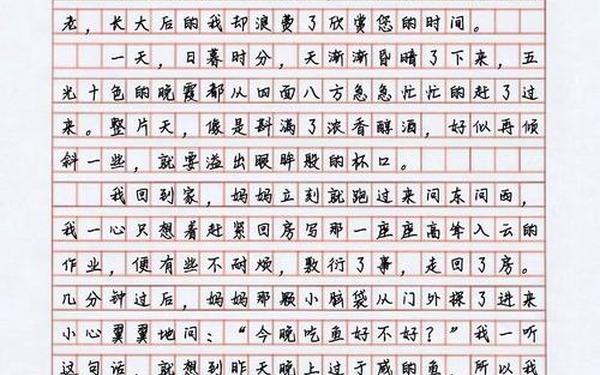 老，长大后的我却浪费了欣赏您的时间。
一天，日暮时分，天渐渐昏暗了下来，五
光十色的晚霞都从四面八方急急忙忙的赶了过
来。整片天，像是斟满了浓香醇酒，好似再倾
斜一些，就要溢出眼眸般的杯口。
我回到家，妈妈立刻就跑过来问东问西，
我一心只想着赶紧回房写那一座座高耸入云的
作业，便有些不耐烦，敷衍了事，走回了房。
几分钟过后，妈妈那颗小脑袋从门外探了进来
小心翼翼地问：“今晚吃鱼好不好？”我一听
这句话，就想到昨天晚上过于咸的鱼，所以我